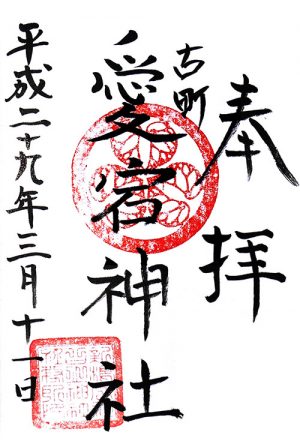 奉拝
古町
愛宕神社
平成二十九年三月十一日